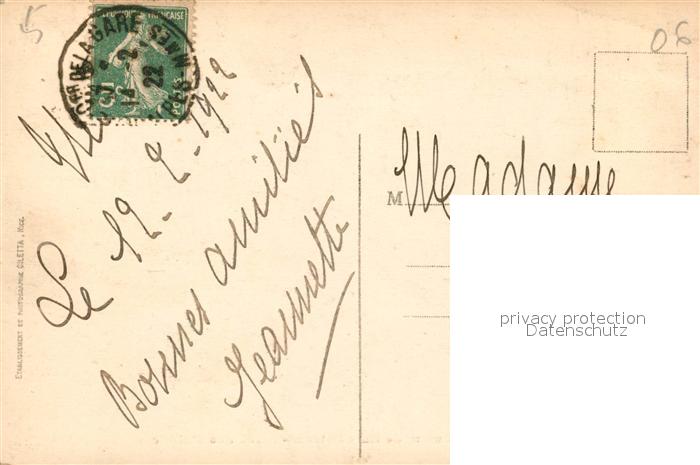 5
06
RÉPUBLIQUE FRANÇAISE
POSTES
DE LA GARE
12 - 2
22
Le 12 - 2 - 1922
Bonnes amitiés
Jeannette
M Madame
privacy protection
Datenschutz
ÉTABLISSEMENT DE PHOTOGRAPHIE GILETTA, NICE.